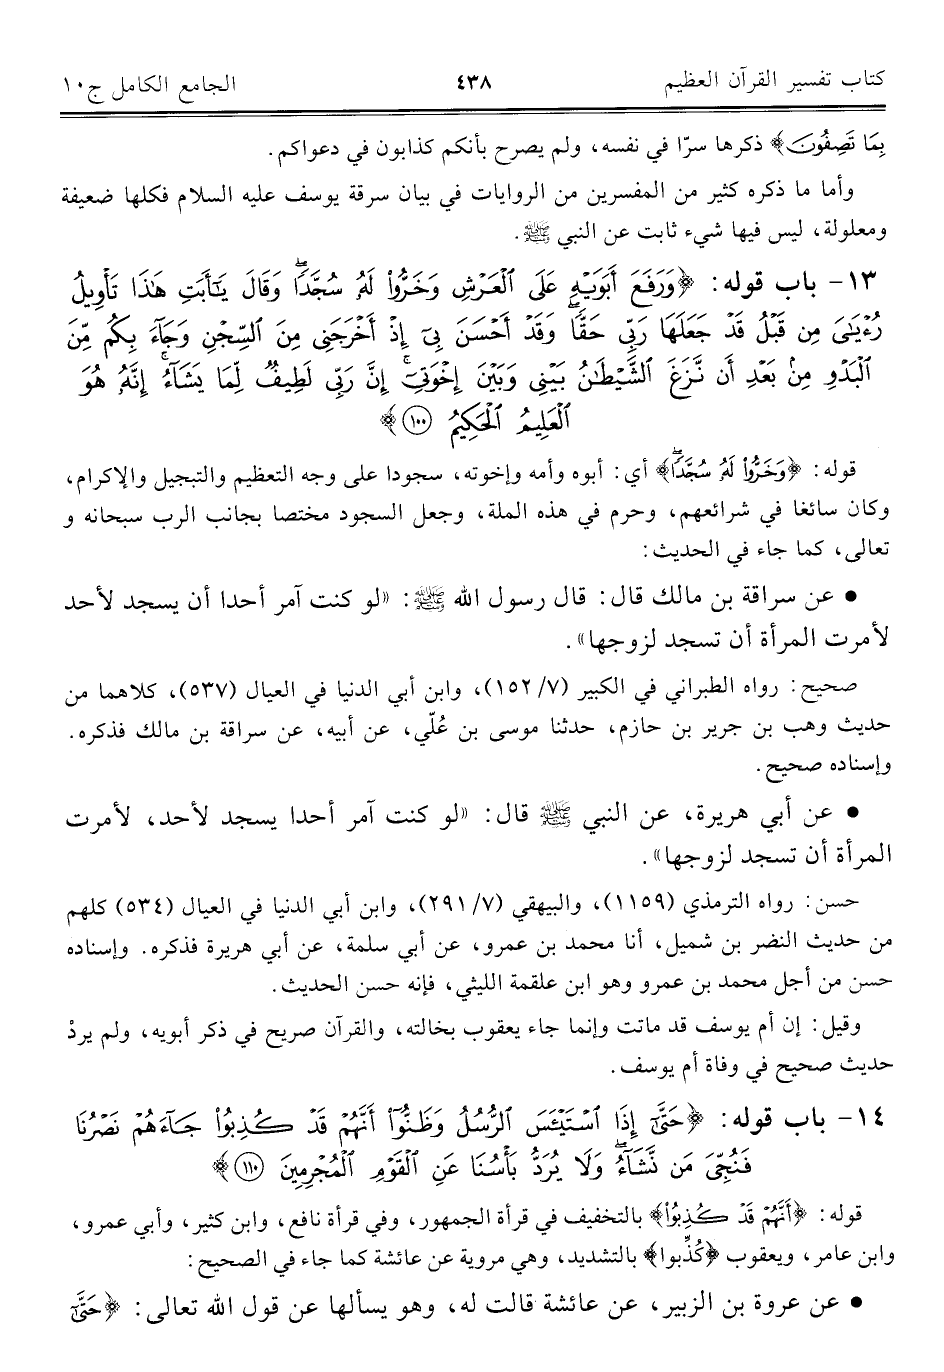 كتاب تفسير القرآن العظيم ٤٣٨ الجامع الكامل ج١٠
بِمَا تَصِفُونَ﴾ ذكرها سرًّا في نفسه، ولم يصرح بأنكم كذابون في دعواكم.
وأما ما ذكره كثير من المفسرين من الروايات في بيان سرقة يوسف عليه السلام فكلها ضعيفة
ومعلولة، ليس فيها شيء ثابت عن النبي ﷺ.
١٣- باب قوله: ﴿وَرَفَعَ أَبَوَيْهِ عَلَى ٱلْعَرْشِ وَخَرُّوا۟ لَهُۥ سُجَّدًا ۖ وَقَالَ يَـٰٓأَبَتِ هَـٰذَا تَأْوِيلُ
رُءْيَـٰىَ مِن قَبْلُ قَدْ جَعَلَهَا رَبِّى حَقًّا ۖ وَقَدْ أَحْسَنَ بِىٓ إِذْ أَخْرَجَنِى مِنَ ٱلسِّجْنِ وَجَآءَ بِكُم مِّنَ
ٱلْبَدْوِ مِنۢ بَعْدِ أَن نَّزَغَ ٱلشَّيْطَـٰنُ بَيْنِى وَبَيْنَ إِخْوَتِىٓ ۚ إِنَّ رَبِّى لَطِيفٌ لِّمَا يَشَآءُ ۚ إِنَّهُۥ هُوَ
ٱلْعَلِيمُ ٱلْحَكِيمُ ١٠٠﴾
قوله: ﴿وَخَرُّوا۟ لَهُۥ سُجَّدًا ۖ﴾ أي: أبوه وأمه وإخوته، سجودا على وجه التعظيم والتبجيل والإكرام،
وكان سائغا في شرائعهم، وحرم في هذه الملة، وجعل السجود مختصا بجانب الرب سبحانه و
تعالى، كما جاء في الحديث:
• عن سراقة بن مالك قال: قال رسول الله ﷺ: «لو كنت آمر أحدا أن يسجد لأحد
لأمرت المرأة أن تسجد لزوجها».
صحيح: رواه الطبراني في الكبير (٧/ ١٥٢)، وابن أبي الدنيا في العيال (٥٣٧)، كلاهما من
حديث وهب بن جرير بن حازم، حدثنا موسى بن عُلّي، عن أبيه، عن سراقة بن مالك فذكره.
وإسناده صحيح.
• عن أبي هريرة، عن النبي ﷺ قال: «لو كنت آمر أحدا يسجد لأحد، لأمرت
المرأة أن تسجد لزوجها».
حسن: رواه الترمذي (١١٥٩)، والبيهقي (٧/ ٢٩١)، وابن أبي الدنيا في العيال (٥٣٤) كلهم
من حديث النضر بن شميل، أنا محمد بن عمرو، عن أبي سلمة، عن أبي هريرة فذكره. وإسناده
حسن من أجل محمد بن عمرو وهو ابن علقمة الليثي، فإنه حسن الحديث.
وقيل: إن أم يوسف قد ماتت وإنما جاء يعقوب بخالته، والقرآن صريح في ذكر أبويه، ولم يردْ
حديث صحيح في وفاة أم يوسف.
١٤- باب قوله: ﴿حَتَّىٰٓ إِذَا ٱسْتَيْـَٔسَ ٱلرُّسُلُ وَظَنُّوٓا۟ أَنَّهُمْ قَدْ كُذِبُوا۟ جَآءَهُمْ نَصْرُنَا
فَنُجِّىَ مَن نَّشَآءُ ۖ وَلَا يُرَدُّ بَأْسُنَا عَنِ ٱلْقَوْمِ ٱلْمُجْرِمِينَ ١١٠﴾
قوله: ﴿أَنَّهُمْ قَدْ كُذِبُوا۟﴾ بالتخفيف في قرأة الجمهور، وفي قرأة نافع، وابن كثير، وأبي عمرو،
وابن عامر، ويعقوب ﴿كُذِّبوا﴾ بالتشديد، وهي مروية عن عائشة كما جاء في الصحيح:
• عن عروة بن الزبير، عن عائشة قالت له، وهو يسألها عن قول الله تعالى: ﴿حَتَّىٰٓ